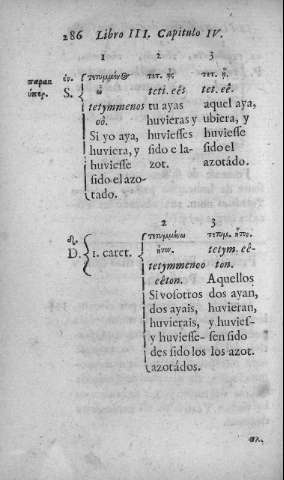 286 Libro III. Capitulo IV.
1 2 3
παρακ ἑν. τετυμμένος τετ. ᾖς τετ. ᾖ.
ὑπερ. S. ὦ teti. eês tet. eê.
tetymmenos tu ayas aquel aya,
oô. huvieras y ubiera, y
Si yo aya, huviesses huviesse
huviera, y sido e la- sido el
huviesse zot. azotádo.
sido el azo-
tado.
2 3
τετυμμένω τετυμ. ἦτον.
D. 1. caret. ἦτον. tetym. eê-
tetymmenoo ton.
eêton. Aquellos
Si vosotros dos ayan,
dos ayais, huvieran,
huvierais, y huvies-
y huviesse- sen sido
des sido los los azot.
azotádos.
πλ.